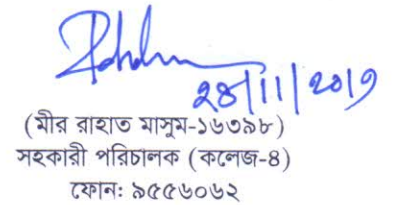 ২৪/11/2019
(মীর রাহাত মাসুম-১৬৩৯৮)
সহকারী পরিচালক (কলেজ-৪)
ফোন: ৯৫৫৬০৬২